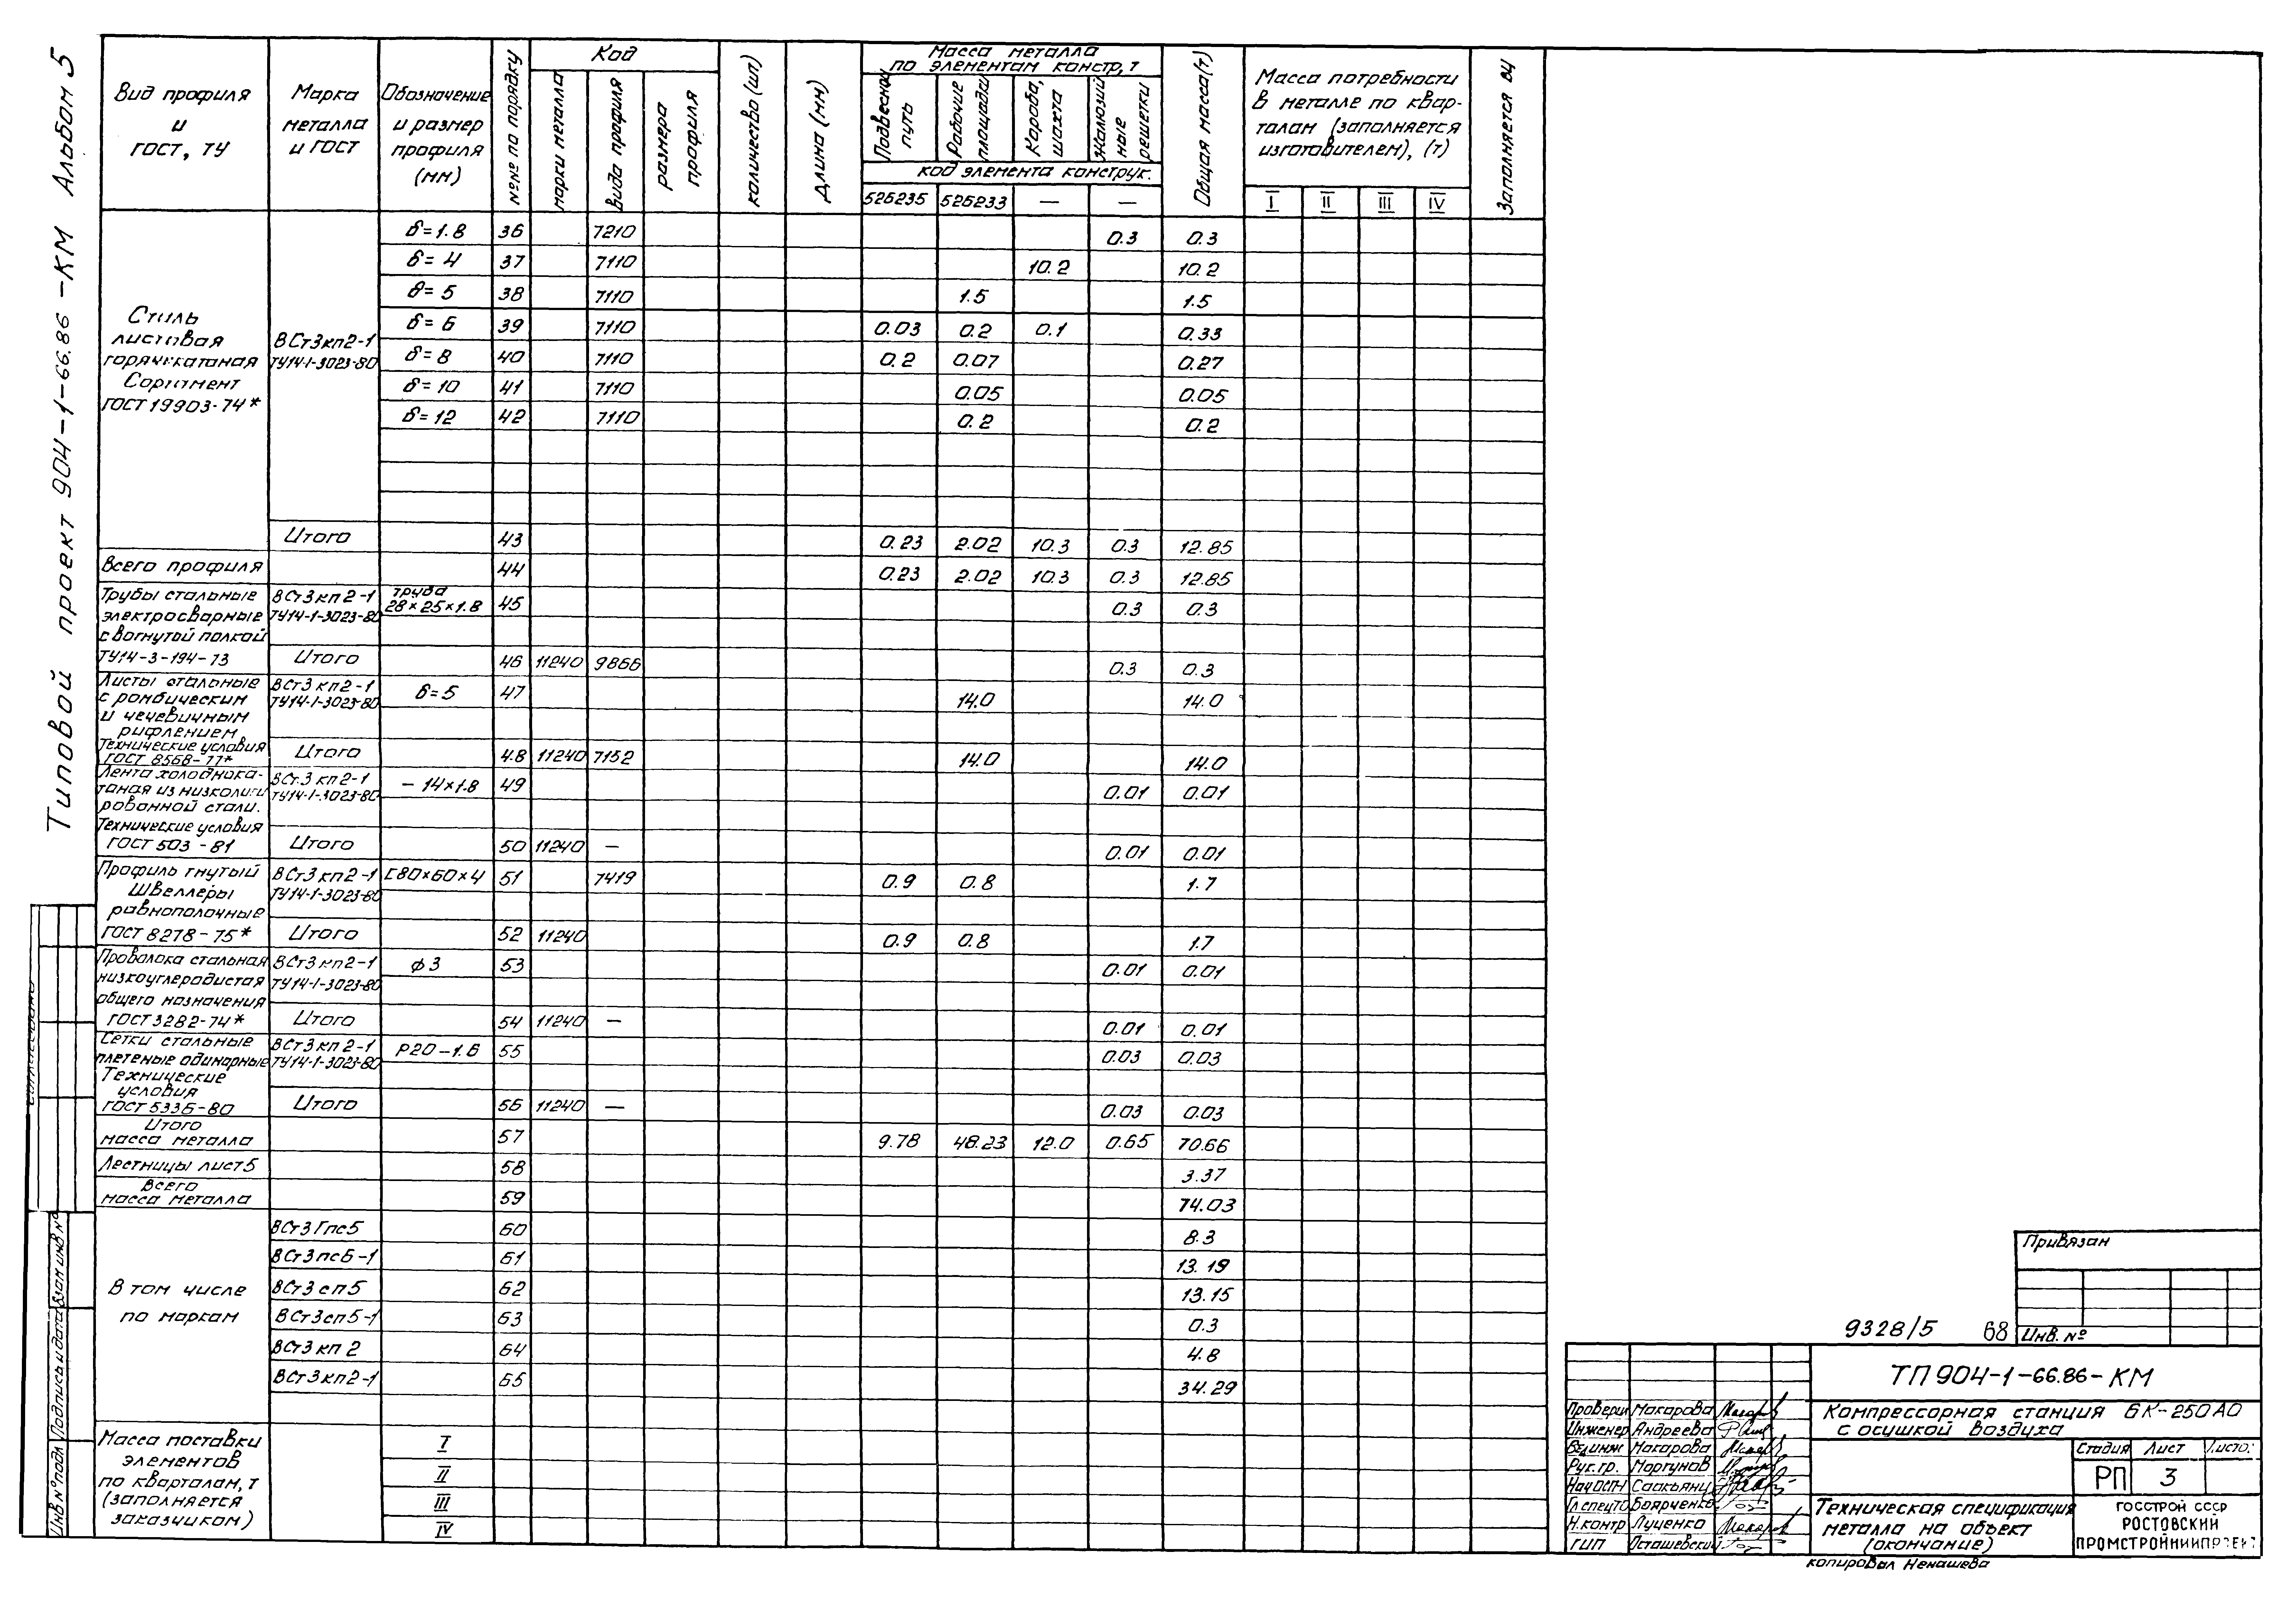 Типовой проект 904-1-66.86-КМ Альбом 5
Вид профиля и ГОСТ, ТУ
Марка металла и ГОСТ
Обозначение и размер профиля (мм)
№№ по порядку
Код
марки металла
вида профиля
размера профиля
количество (шт)
Длина (мм)
Масса металла по элементам констр, т
Подвесной путь
Рабочие площадки
Короба, шахта
Жалюзийные решетки
код элемента конструк.
526235 526233 — —
Общая масса (т)
Масса потребности в металле по кварталам (заполняется изготовителем), (т)
I II III IV
Заполняется ВЦ
Сталь листовая горячекатаная Сортамент ГОСТ 19903-74*
ВСт3кп2-1 ТУ14-1-3023-80
δ=1.8 36 7210 0.3 0.3
δ=4 37 7110 10.2 10.2
δ=5 38 7110 1.5 1.5
δ=6 39 7110 0.03 0.2 0.1 0.33
δ=8 40 7110 0.2 0.07 0.27
δ=10 41 7110 0.05 0.05
δ=12 42 7110 0.2 0.2
Итого 43 0.23 2.02 10.3 0.3 12.85
Всего профиля 44 0.23 2.02 10.3 0.3 12.85
Трубы стальные электросварные с вогнутой полкой ТУ14-3-194-73
ВСт3кп2-1 ТУ14-1-3023-80 труба 28×25×1.8 45 0.3 0.3
Итого 46 11240 9866 0.3 0.3
Листы стальные с ромбическим и чечевичным рифлением Технические условия ГОСТ 8568-77*
ВСт3кп2-1 ТУ14-1-3023-80 δ=5 47 14.0 14.0
Итого 48 11240 7152 14.0 14.0
Лента холоднокатаная из низколеги рованной стали. Технические условия ГОСТ 503-81
ВСт3кп2-1 ТУ14-1-3023-80 — 14×1.8 49 0.01 0.01
Итого 50 11240 — 0.01 0.01
Профиль гнутый Швеллеры равнополочные ГОСТ 8278-75*
ВСт3кп2-1 ТУ14-1-3023-80 [80×60×4 51 7419 0.9 0.8 1.7
Итого 52 11240 0.9 0.8 1.7
Проволока стальная низкоуглеродистая общего назначения ГОСТ 3282-74*
ВСт3кп2-1 ТУ14-1-3023-80 ϕ3 53 0.01 0.01
Итого 54 11240 — 0.01 0.01
Сетки стальные плетеные одинарные Технические условия ГОСТ 5336-80
ВСт3кп2-1 ТУ14-1-3023-80 Р20-1.6 55 0.03 0.03
Итого 56 11240 — 0.03 0.03
Итого масса металла 57 9.78 48.23 12.0 0.65 70.66
Лестницы лист 5 58 3.37
Всего масса металла 59 74.03
В том числе по маркам
ВСт3Гпс5 60 8.3
ВСт3пс6-1 61 13.19
ВСт3сп5 62 13.15
ВСт3сп5-1 63 0.3
ВСт3кп2 64 4.8
ВСт3кп2-1 65 34.29
Масса поставки элементов по кварталам, т (заполняется заказчиком)
I
II
III
IV
Инв № подл
Подпись и дата
Взам инв №
Привязан
Инв. №
9328/5 68
ТП 904-1-66.86-КМ
Компрессорная станция 6К-250АО с осушкой воздуха
Провери Макарова
Инженер Андреева
Вединж Макарова
Рук.гр. Моргунов
Нач ОСН Саакьянц
Гл спец то Боярченко
Н.контр Луценко
ГИП Осташевский
Стадия Лист Листо
РП 3
Техническая спецификация металла на объект (окончание)
ГОССТРОЙ СССР
РОСТОВСКИЙ
ПРОМСТРОЙНИИПРОЕКТ
копировал Ненашева